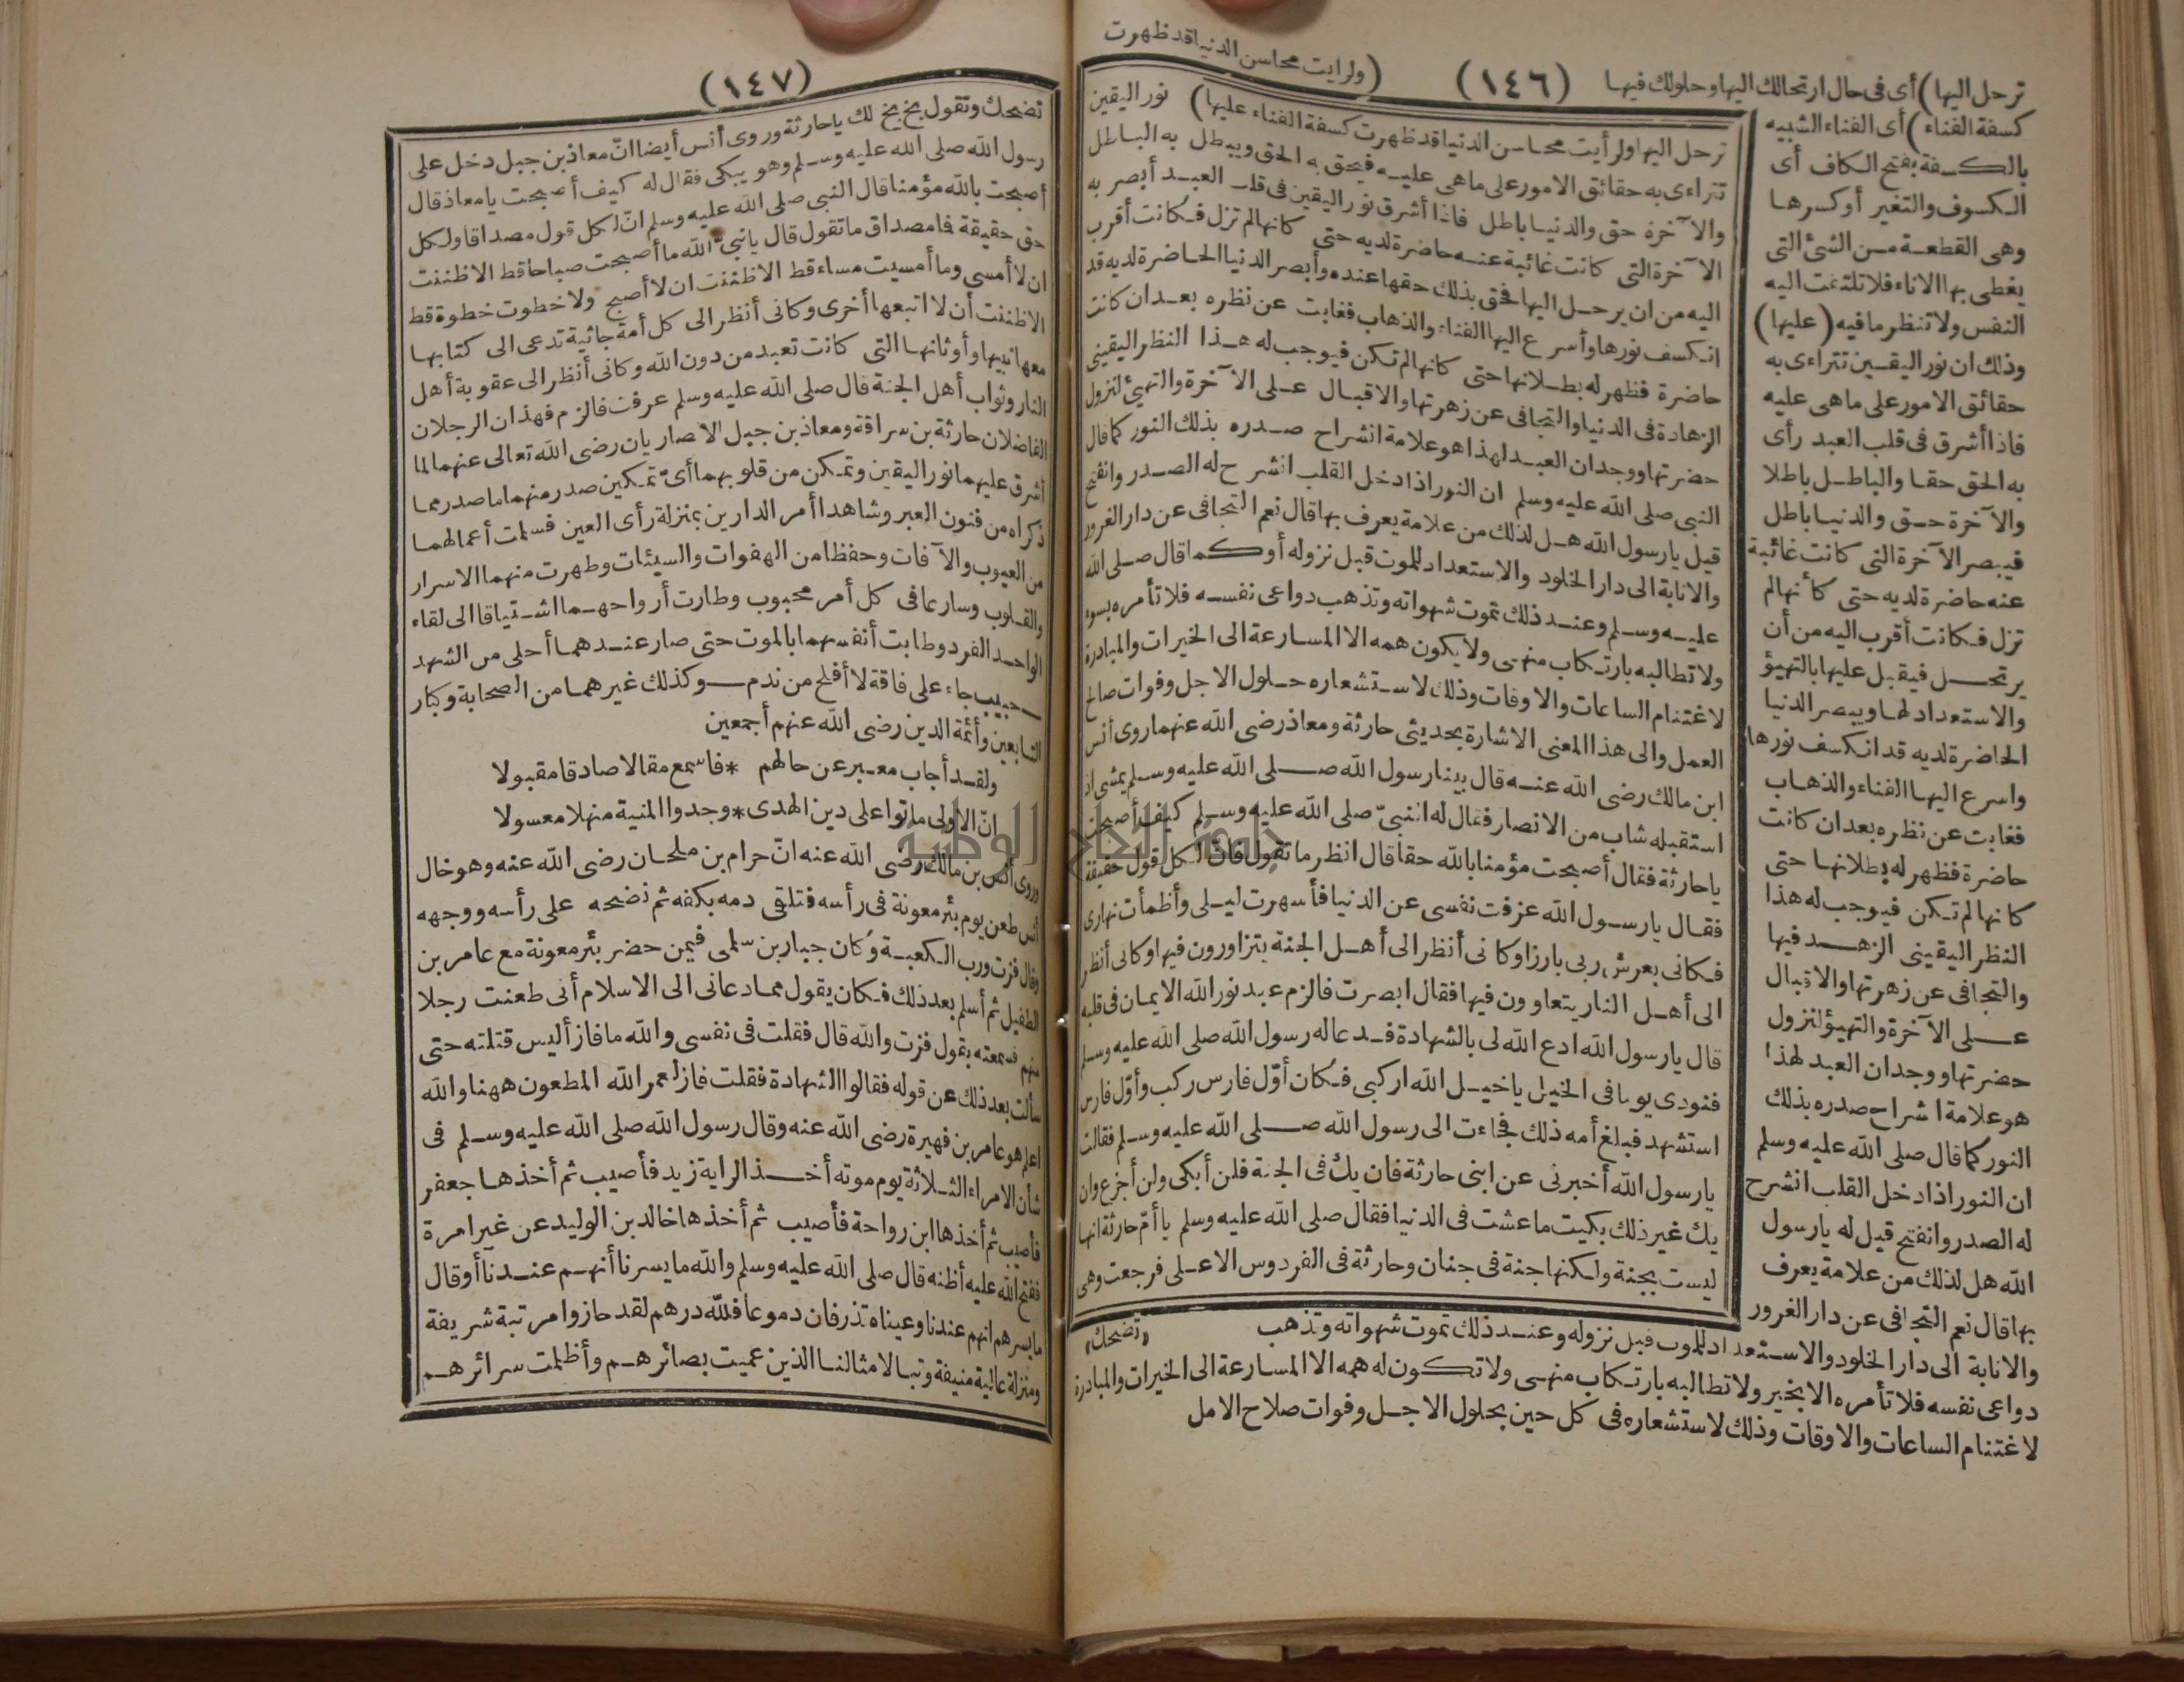 ترحل اليها) أى فى حال ارتحالك اليها وحلولك فيها (١٤٦) (ولرايت محاسن الدنيا قد ظهرت
كسفة الفناء) أى الفناء الشبيه
بالكسفة بفتح الكاف أى
الكسوف والتغير أو كسرها
وهى القطعة من الشئ التى
يغطى بها الاناء فلا تلتفت اليه
النفس ولا تنظر ما فيه (عليها)
وذلك ان نور اليقين تتراءى به
حقائق الامور على ما هى عليه
فاذا أشرق فى قلب العبد رأى
به الحق حقا والباطل باطلا
والآخرة حق والدنيا باطل
فيبصر الآخرة التى كانت غائبة
عنه حاضرة لديه حتى كأنها لم
تزل فكانت أقرب اليه من أن
يرتحل فيقبل عليها بالتهيؤ
والاستعداد لها ويبصر الدنيا
الحاضرة لديه قد انكسف نورها
واسرع اليها الفناء والذهاب
فغابت عن نظره بعد ان كانت
حاضرة فظهر له بطلانها حتى
كانها لم تكن فيوجب له هذا
النظر اليقينى الزهد فيها
والتجافى عن زهرتها والاقبال
على الآخرة والتهيؤ لنزول
حضرتها ووجدان العبد لهذا
هو علامة اشراح صدره بذلك
النور كما قال صلى الله عليه وسلم
ان النور اذا دخل القلب انشرح
له الصدر وانفتح قيل له يا رسول
الله هل لذلك من علامة يعرف
بها قال نعم التجافى عن دار الغرور
والانابة الى دار الخلود والاستعداد للموت قبل نزوله وعند ذلك تموت شهواته وتذهب
دواعى نفسه فلا تأمره الا بخير ولا تطالبه بارتكاب منهى ولا تكون له همه الا المسارعة الى الخيرات والمبادرة
لاغتنام الساعات والاوقات وذلك لاستشعاره فى كل حين بحلول الاجل وفوات صلاح الامل
ترحل اليها ولرأيت محاسن الدنيا قد ظهرت كسفة الفناء عليها) نور اليقين
تتراءى به حقائق الامور على ما هى عليه فيحق به الحق ويبطل به الباطل
والآخرة حق والدنيا باطل فاذا أشرق نور اليقين فى قلب العبد أبصر به
الآخرة التى كانت غائبة عنه حاضرة لديه حتى كانها لم تزل فكانت أقرب
اليه من ان يرحل اليها فحق بذلك حقها عنده وأبصر الدنيا الحاضرة لديه قد
انكسف نورها وأسرع اليها الفناء والذهاب فغابت عن نظره بعد ان كانت
حاضرة فظهر له بطلانها حتى كانها لم تكن فيوجب له هذا النظر اليقينى
الزهادة فى الدنيا والتجافى عن زهرتها والاقبال على الآخرة والتهيئ لنزول
حضرتها ووجدان العبد لهذا هو علامة انشراح صدره بذلك النور كما قال
النبى صلى الله عليه وسلم ان النور اذا دخل القلب انشرح له الصدر وانفتح
قيل يا رسول الله هل لذلك من علامة يعرف بها قال نعم التجافى عن دار الغرور
والانابة الى دار الخلود والاستعداد للموت قبل نزوله أو كما قال صلى الله
عليه وسلم وعند ذلك تموت شهواته وتذهب دواعى نفسه فلا تأمره بسوء
ولا تطالبه بارتكاب منهى ولا يكون همه الا المسارعة الى الخيرات والمبادرة
لاغتنام الساعات والاوقات وذلك لاستشعاره حلول الاجل وفوات صالح
العمل والى هذا المعنى الاشارة بحديثى حارثة ومعاذ رضى الله عنهما روى أنس
ابن مالك رضى الله عنه قال بينا رسول الله صلى الله عليه وسلم يمشى اذ
استقبله شاب من الانصار فقال له النبىّ صلى الله عليه وسلم كيف أصبحت
يا حارثة فقال أصبحت مؤمنا بالله حقا قال انظر ما تقول فان لكل قول حقيقة
فقال يا رسول الله عزفت نفسى عن الدنيا فأسهرت ليلى وأظمأت نهارى
فكانى بعرش ربى بارزا وكانى أنظر الى أهل الجنة يتزاورون فيها وكانى أنظر
الى أهل النار يتعاوون فيها فقال ابصرت فالزم عبد نور الله الايمان فى قلبه
قال يا رسول الله ادع الله لى بالشهادة فدعا له رسول الله صلى الله عليه وسلم
فنودى يوما فى الخيل يا خيل الله اركبى فكان أوّل فارس ركب وأوّل فارس
استشهد فبلغ أمه ذلك فجاءت الى رسول الله صلى الله عليه وسلم فقالت
يا رسول الله أخبرنى عن ابنى حارثة فان يك فى الجنة فلن أبكى ولن أجزع وان
يك غير ذلك بكيت ما عشت فى الدنيا فقال صلى الله عليه وسلم يا أمّ حارثة انها
ليست بجنة ولكنها جنة فى جنان وحارثة فى الفردوس الاعلى فرجعت وهى
«تضحك»
(١٤٧)
تضحك وتقول بخ بخ لك يا حارثة وروى أنس أيضا انّ معاذ بن جبل دخل على
رسول الله صلى الله عليه وسلم وهو يبكى فقال له كيف أصبحت يا معاذ قال
أصبحت بالله مؤمنا قال النبى صلى الله عليه وسلم انّ لكل قول مصداقا ولكل
حق حقيقة فما مصداق ما تقول قال يا نبىّ الله ما أصبحت صباحا قط الا ظننت
ان لا أمسى وما أمسيت مساء قط الا ظننت ان لا أصبح ولا خطوت خطوة قط
الا ظننت أن لا اتبعها أخرى وكانى أنظر الى كل أمة جاثية تدعى الى كتابها
معها نبيها وأوثانها التى كانت تعبد من دون الله وكانى أنظر الى عقوبة أهل
النار وثواب أهل الجنة قال صلى الله عليه وسلم عرفت فالزم فهذان الرجلان
الفاضلان حارثة بن سراقة ومعاذ بن جبل الانصاريان رضى الله تعالى عنهما لما
أشرق عليهما نور اليقين وتمكن من قلوبهما أىّ تمكين صدر منهما ما صدر مما
ذكراه من فنون العبر وشاهدا أمر الدارين بمنزلة رأى العين فسلمت أعمالهما
من العيوب والآفات وحفظا من الهفوات والسيئات وطهرت منهما الاسرار
والقلوب وسارعا فى كل أمر محبوب وطارت أرواحهما اشتياقا الى لقاء
الواحد الفرد وطابت أنفسهما بالموت حتى صار عندهما أحلى من الشهد
حبيب جاء على فاقة لا أفلح من ندم وكذلك غيرهما من الصحابة وكبار
التابعين وأئمة الدين رضى الله عنهم أجمعين
ولقد أجاب معبر عن حالهم * فاسمع مقالا صادقا مقبولا
انّ الاولى ماتوا على دين الهدى * وجدوا المنية منهلا معسولا
وروى أنس بن مالك رضى الله عنه انّ حرام بن ملحان رضى الله عنه وهو خال
أنس طعن يوم بئر معونة فى رأسه فتلقى دمه بكفه ثم نضحه على رأسه ووجهه
وقال فزت ورب الكعبة وكان جبار بن سلمى فيمن حضر بئر معونة مع عامر بن
الطفيل ثم أسلم بعد ذلك فكان يقول مما دعانى الى الاسلام أنى طعنت رجلا
منهم فسمعته يقول فزت والله قال فقلت فى نفسى والله ما فاز أليس قتلته حتى
سألت بعد ذلك عن قوله فقالوا الشهادة فقلت فاز لعمر الله المطعون ههنا والله
اعلم هو عامر بن فهيرة رضى الله عنه وقال رسول الله صلى الله عليه وسلم فى
شأن الامراء الثلاثة يوم موته أخذ الراية زيد فأصيب ثم أخذها جعفر
فأصيب ثم أخذها ابن رواحة فأصيب ثم أخذها خالد بن الوليد عن غير امرة
ففتح الله عليه أظنه قال صلى الله عليه وسلم والله ما يسرنا أنهم عندنا أو قال
ما يسرهم انهم عندنا وعيناه تذرفان دموعا فلله درهم لقد حازوا مرتبة شريفة
ومنزلة عالية منيفة وتبا لامثالنا الذين عميت بصائرهم وأظلمت سرائرهم
جامعة النجاح الوطنية